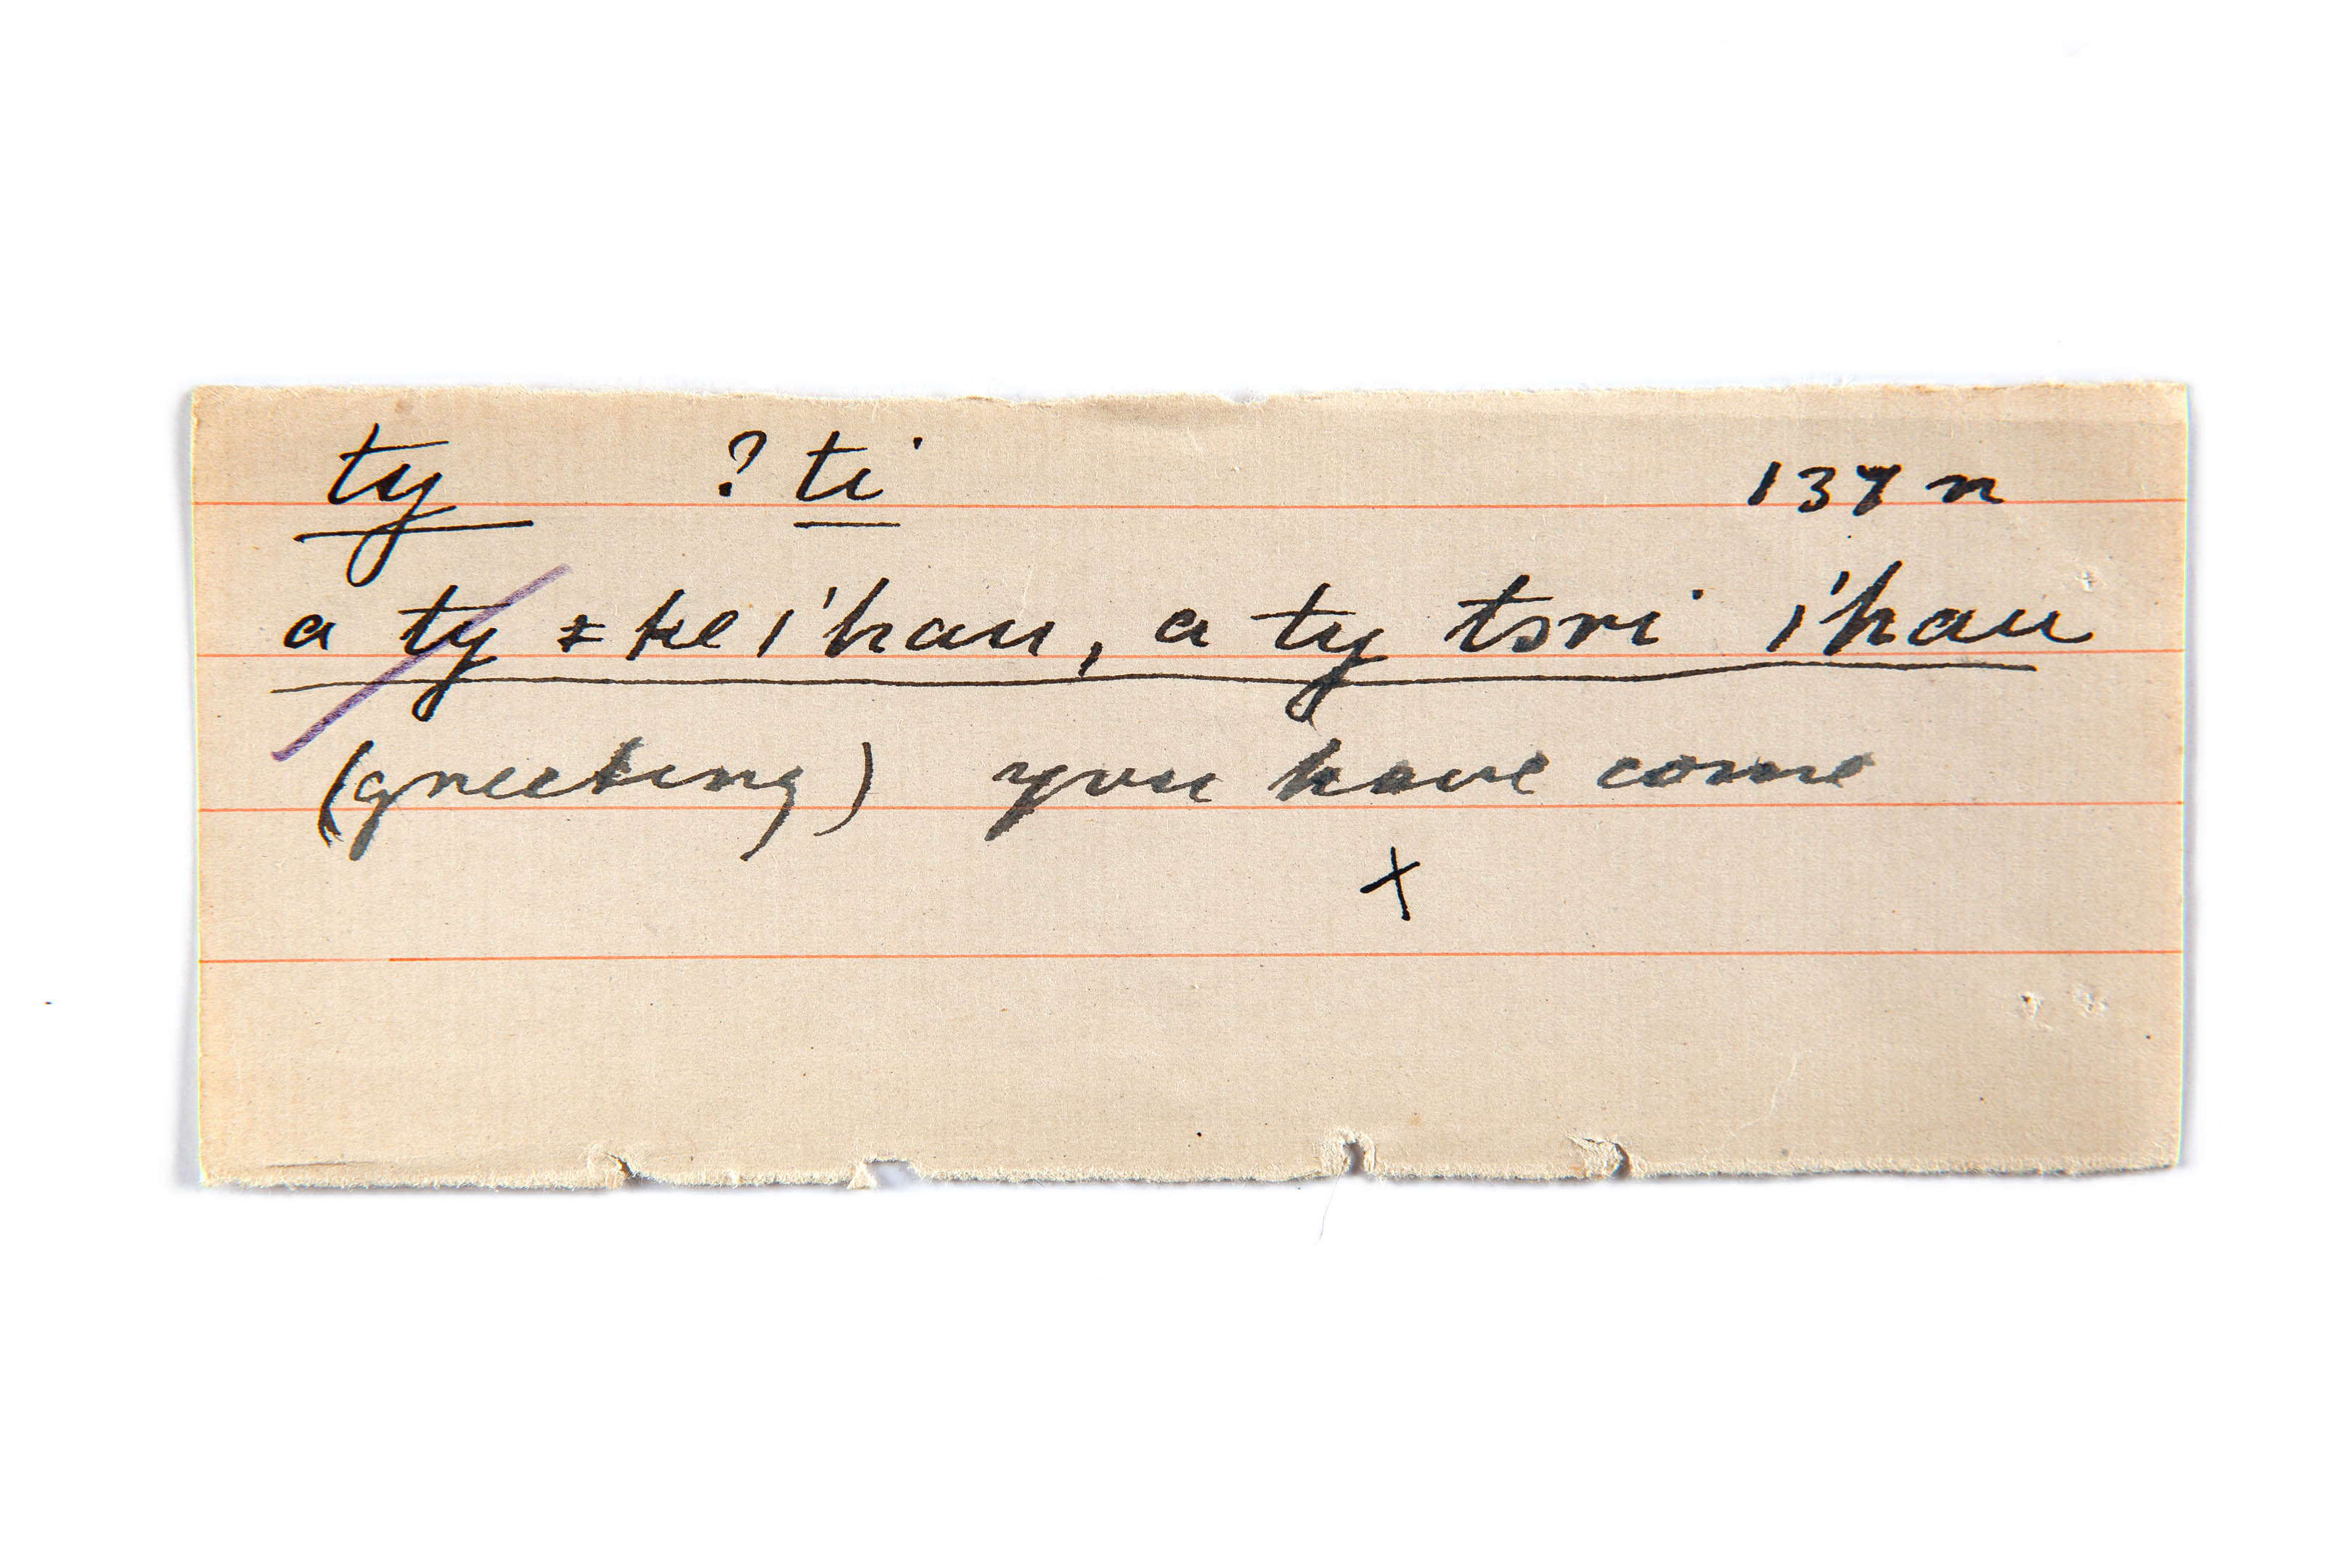 ty ? ti 137 n
a ty ǂke i'hau, a ty tsri i'hau
(greeting) you have come
x